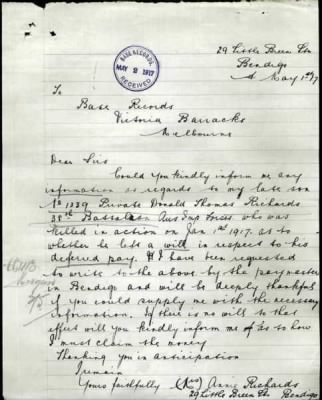 29 Little Breen Stn
Bendigo
May 1st 17
BASE RECORDS.
MAY 2 1917
RECEIVED
To
Base Records
Victoria Barracks
Melbourne
Dear Sir
Could you kindly inform me any
information as regards to my late son
No 1239 Private Donald Thomas Richards
38th Battalion Aus Imp Forces who was
killed in action on Jan 1st 1917. as to
whether he left a will in respect to his
deferred pay. I have been requested
to write to the above by the paymaster
in Bendigo and will be deeply thankful
if you could supply me with the necessary
information. If there is no will to that
effect will you kindly inform me as to how
I must claim the money
Thanking you in anticipation
I remain
Yours faithfully (Mrs) Annie Richards
29 Little Breen Stn Bendigo